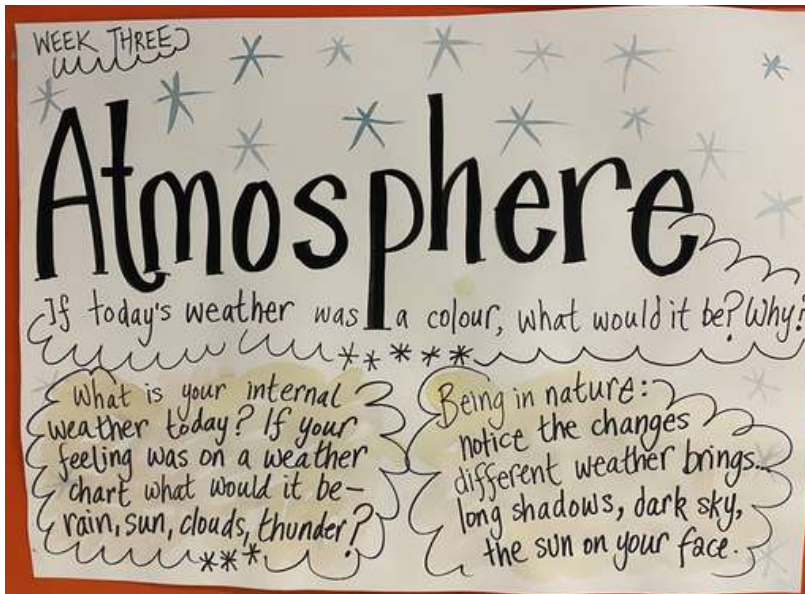 WEEK THREE
Atmosphere
If today's weather was a colour, what would it be? Why?
*****
What is your internal
weather today? If your
feeling was on a weather
chart what would it be–
rain, sun, clouds, thunder?
***
Being in nature:
notice the changes
different weather brings...
long shadows, dark sky,
the sun on your face.